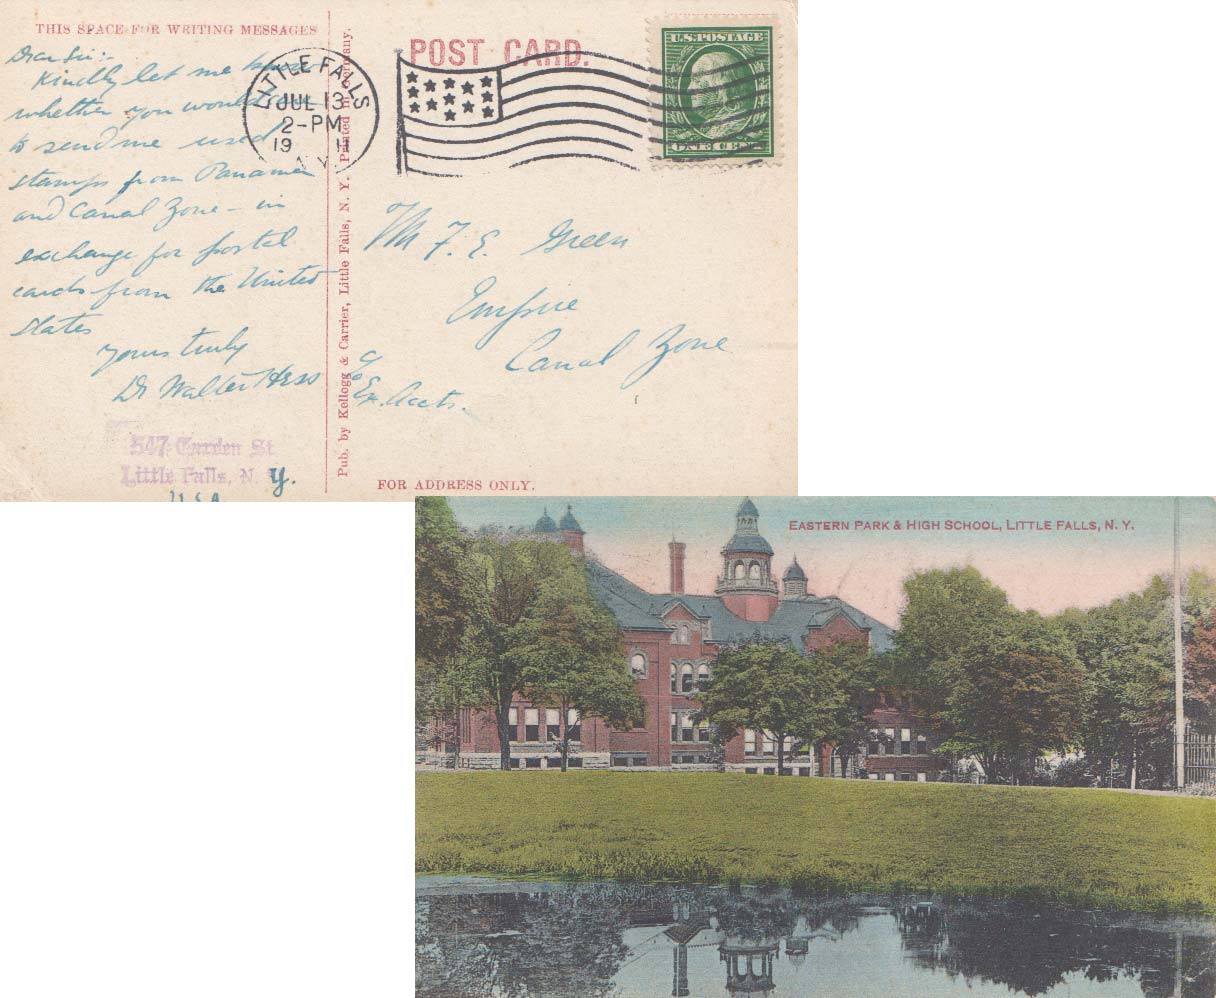 THIS SPACE FOR WRITING MESSAGES
Dear Sir:-
Kindly let me know
whether you would care
to send me used
stamps from Panama
and Canal Zone - in
exchange for postal
cards from the United
States
yours truly
Dr Walter Hess
547 Garden St
Little Falls, N. Y.
USA
Pub. by Kellogg & Carrier, Little Falls, N. Y. Printed in Germany.
LITTLE FALLS
JUL 13
2-PM
19 11
N.Y.
POST CARD.
U.S.POSTAGE
ONE CENT
Mr F. E. Green
Empire
Canal Zone
c/o Ex. Accts.
FOR ADDRESS ONLY.
EASTERN PARK & HIGH SCHOOL, LITTLE FALLS, N. Y.